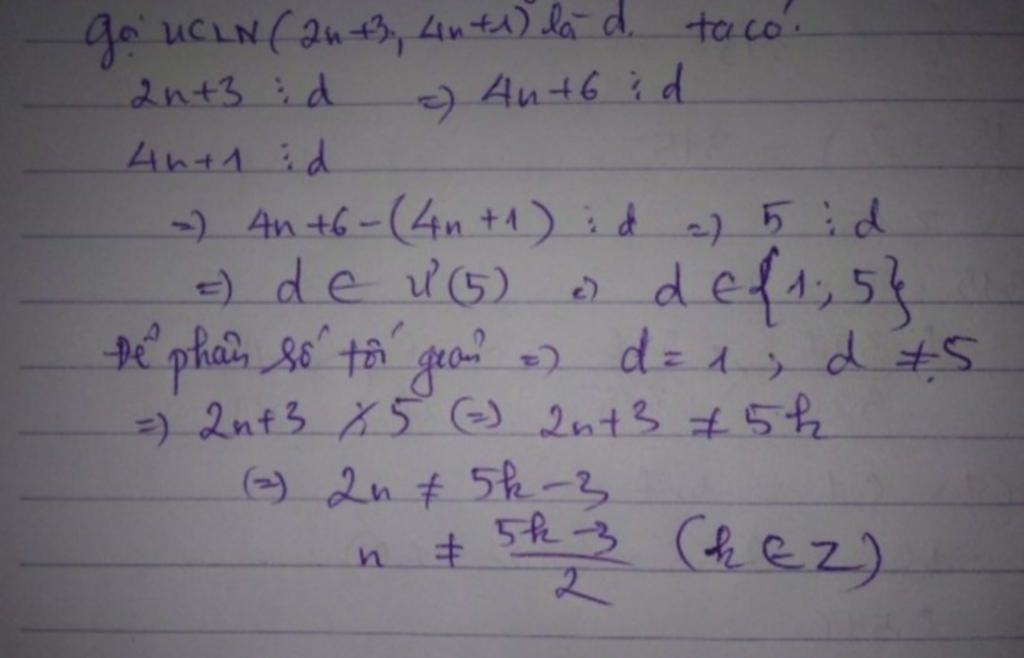 Gọi ƯCLN (2n+3, 4n+1) là d. ta có:
2n+3 ⋮ d => 4n+6 ⋮ d
4n+1 ⋮ d
=> 4n+6-(4n+1) ⋮ d => 5 ⋮ d
=> d ∈ Ư(5) => d ∈ {1; 5}
Để phân số tối giản => d = 1; d ≠ 5
=> 2n+3 ⋮̸ 5 (=) 2n+3 ≠ 5k
(=) 2n ≠ 5k-3
n ≠ \frac{5k-3}{2} (k ∈ Z)